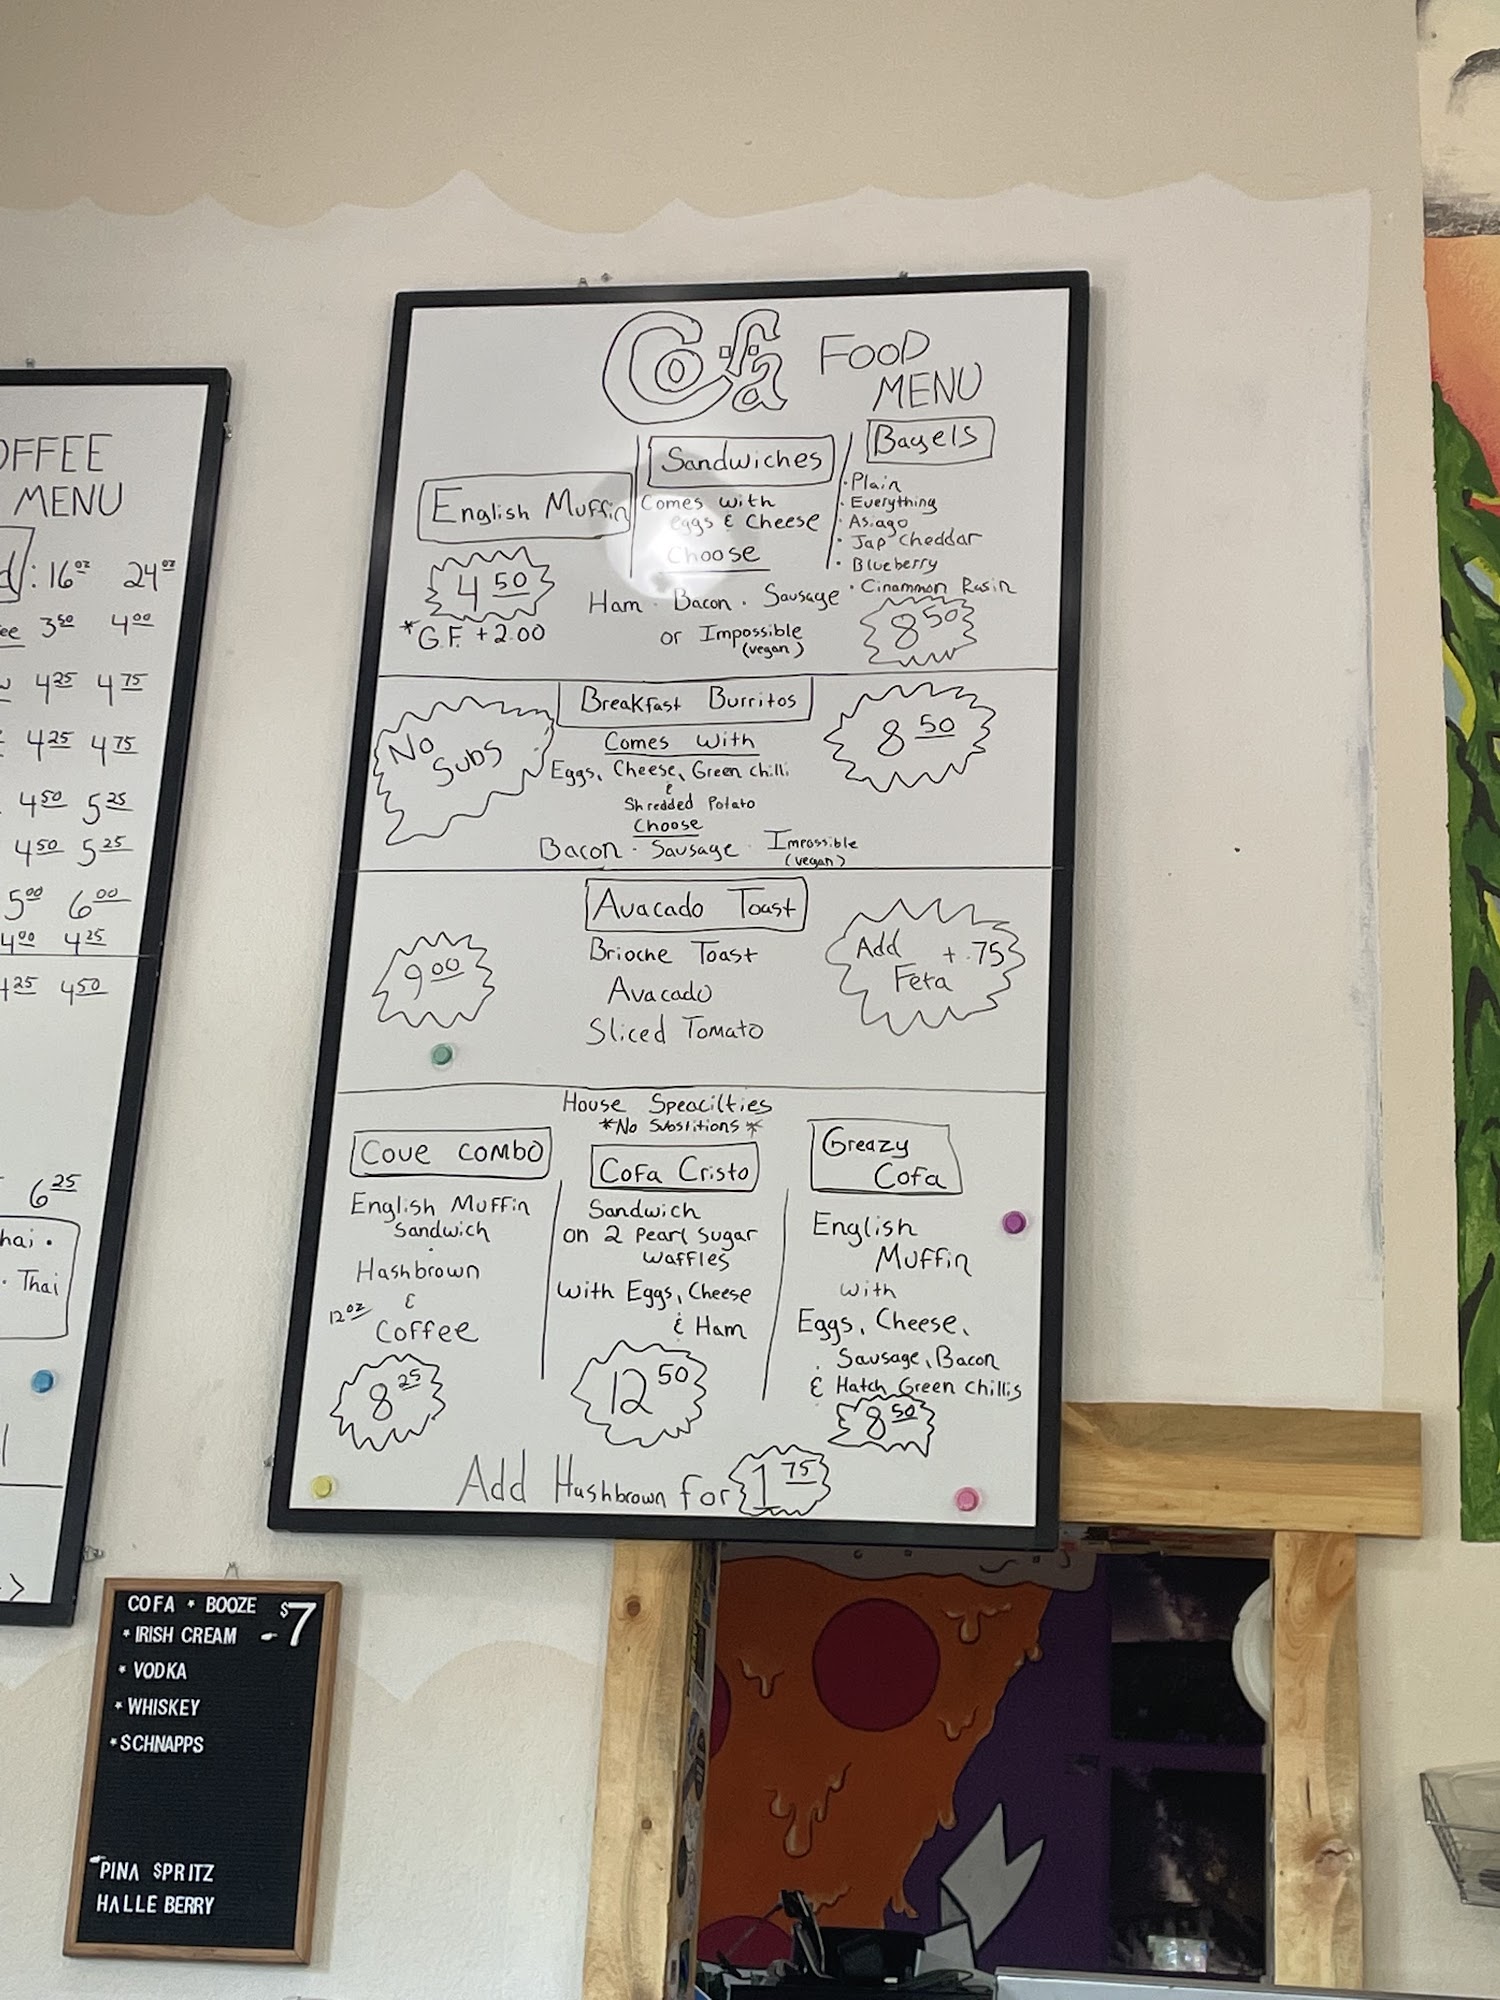 OFFEE
MENU
: 16oz 24oz
3.50 4.00
4.25 4.75
4.25 4.75
4.50 5.25
4.50 5.25
5.00 6.00
4.00 4.25
4.25 4.50
6.25
hai •
• Thai
Cofa FOOD
MENU
English Muffin
4.50
*G.F. +2.00
Sandwiches
Comes with
eggs & Cheese
Choose
Ham · Bacon · Sausage
or Impossible
(vegan)
Bagels
· Plain
· Everything
· Asiago
· Jap Cheddar
· Blueberry
· Cinammon Rasin
8.50
No
Subs
Breakfast Burritos
Comes With
Eggs, Cheese, Green chilli
&
Shredded Potato
Choose
Bacon · Sausage · Impossible
(vegan)
8.50
Avacado Toast
Brioche Toast
Avacado
Sliced Tomato
9.00
Add + .75
Feta
House Speacilties
*No Subsitions*
Cove Combo
English Muffin
Sandwich
·
Hashbrown
&
12oz Coffee
8.25
Cofa Cristo
Sandwich
on 2 Pearl Sugar
Waffles
With Eggs, Cheese
& Ham
12.50
Greazy
Cofa
English
Muffin
with
Eggs, Cheese,
Sausage, Bacon
& Hatch Green Chillis
8.50
Add Hashbrown for 1.75
COFA * BOOZE $7
* IRISH CREAM
* VODKA
* WHISKEY
* SCHNAPPS
PINA SPRITZ
HALLE BERRY